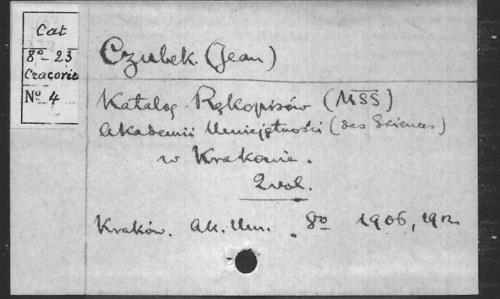 Cat
8º-23
Cracovie
Nº 4
Czubek (Jean)
Katalog Rękopisów (MSS)
Akademii Umiejętności (des Sciences)
w Krakowie.
2 vol.
Kraków. Ak. Um. 8º 1906, 1912